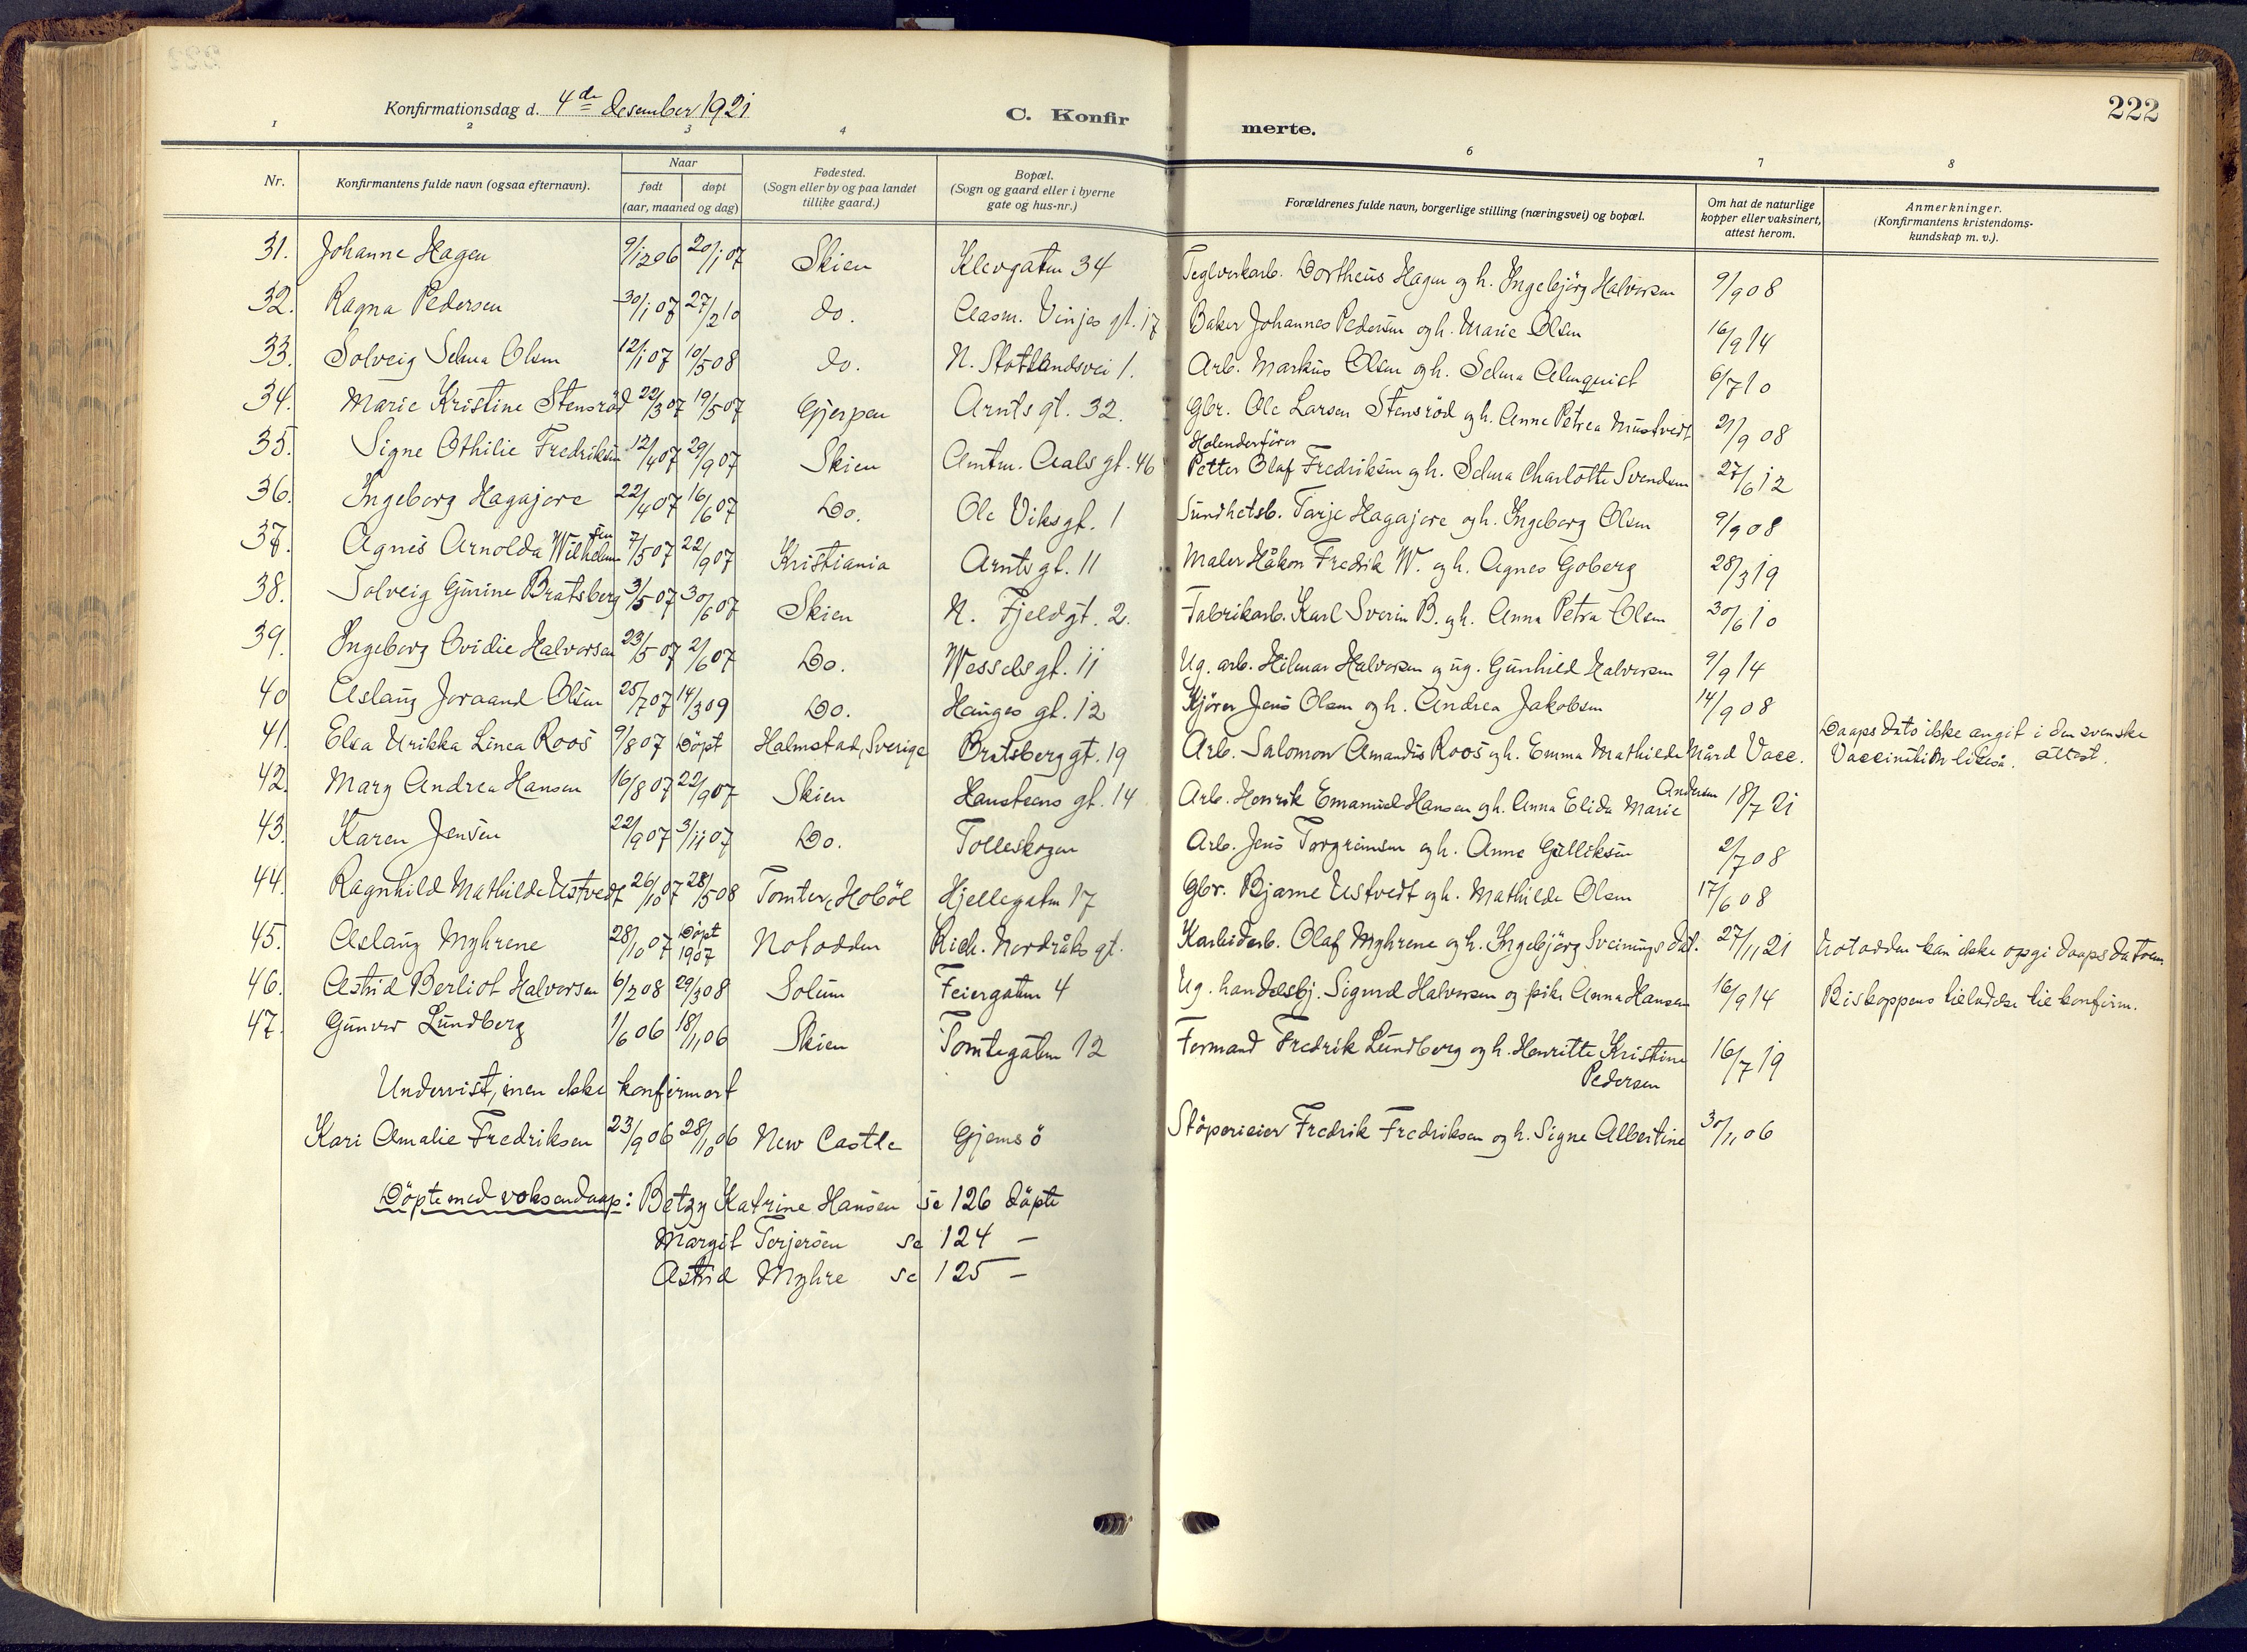 222
Konfirmationsdag d. 4de desember 1921
C. Konfir merte.
1 2 3 4 6 7 8
Nr. Konfirmantens fulde navn (ogsaa efternavn). Naar født døpt (aar, maaned og dag) Fødested. (Sogn eller by og paa landet tillike gaard.) Bopæl. (Sogn og gaard eller i byerne gate og hus-nr.) Forældrenes fulde navn, borgerlige stilling (næringsvei) og bopæl. Om hat de naturlige kopper eller vaksinert, attest herom. Anmerkninger. (Konfirmantens kristendoms- kundskap m. v.).
31. Johanne Hagen 9/12 06 20/1 07 Skien Klevgaten 34 Teglverkarb. Dortheus Hagen og h. Ingebjörg Halvorsen 9/9 08
32. Ragna Pedersen 30/1 07 27/2 10 do. Aasm. Vinjes gt. 17 Baker Johannes Pedersen og h. Marie Olsen 16/9 14
33. Solveig Selma Olsen 12/1 07 10/5 08 do. N. Stotlandsvei 1. Arb. Markus Olsen og h. Selma Almquist 6/7 10
34. Marie Kristine Stensröd 22/3 07 19/5 07 Gjerpen Arnts gt. 32. Gbr. Ole Larsen Stensröd og h. Anne Petrea Mustvedt 21/9 08
35. Signe Othilie Fredriksen 12/4 07 29/9 07 Skien Amtm. Aals gt. 46 Holenderförer Petter Olaf Fredriksen og h. Selma Charlotte Svendsen 27/6 12
36. Ingeborg Hagajore 22/4 07 16/6 07 Do. Ole Viks gt. 1 Sundhetsb. Tarje Hagajore og h. Ingeborg Olsen 9/9 08
37. Agnes Arnolda Wilhelmsen 7/5 07 22/9 07 Kristiania Arnts gt. 11 Maler Håkon Fredrik W. og h. Agnes Goberg 28/3 19
38. Solveig Gurine Bratsberg 3/5 07 30/6 07 Skien N. Fjeldgt. 2. Fabrikarb. Karl Sverin B. og h. Anna Petra Olsen 30/6 10
39. Ingeborg Ovidie Halvorsen 23/5 07 2/6 07 Do. Wessels gt. 11 Ug. arb. Hilmar Halvorsen og ug. Gunhild Halvorsen 9/9 14
40 Aslaug Joraand Olsen 25/7 07 14/3 09 Do. Hauges gt. 12 Kjörer Jens Olsen og h. Andrea Jakobsen 14/9 08
41. Elsa Urikka Linea Roos 9/8 07 Döpt Halmstad, Sverige Bratsberggt. 19 Arb. Salomon Amandus Roos og h. Emma Mathilde Mård Vacc. Daapsdato ikke angit i den svenske attest. Vaccination likeså.
42. Mary Andrea Hansen 16/8 07 22/9 07 Skien Hansteens gt. 14 Arb. Henrik Emanuel Hansen og h. Anna Elida Marie Andersen 18/7 21
43. Karen Jensen 22/9 07 3/11 07 Do. Tolleskogen Arb. Jens Torgrimsen og h. Anne Gulliksen 2/7 08
44. Ragnhild Mathilde Ustvedt 26/10 07 28/5 08 Tomter, Hoböl Hjellegaten 17 Gbr. Bjarne Ustvedt og h. Mathilde Olsen 17/6 08
45. Aslaug Myhrene 28/10 07 Döpt 1907 Notodden Rich. Nordråks gt. Karbidarb. Olaf Myhrene og h. Ingebjörg Sveinungsdat. 27/11 21 Notodden kan ikke opgi daapsdatoen
46. Astrid Berliot Halvorsen 6/2 08 29/3 08 Solum Feiergaten 4 Ug. handelsbj. Sigurd Halvorsen og pike Anna Hansen 16/9 14 Biskoppens tilladelse til konfirm.
47. Gunvor Lundberg 1/6 06 18/11 06 Skien Tomtegaten 12 Formand Fredrik Lundberg og h. Henritte Kristine Pedersen 16/7 19
Undervist, men ikke konfirmert
Kari Amalie Fredriksen 23/9 06 28/10 06 New Castle Gjemsö Stöperieier Fredrik Fredriksen og h. Signe Albertine 30/11 06
Döpte med voksendaap: Betzy Katrine Hansen se 126 döpte
Margit Torjersen se 124 —
Astrid Myhre se 125 —